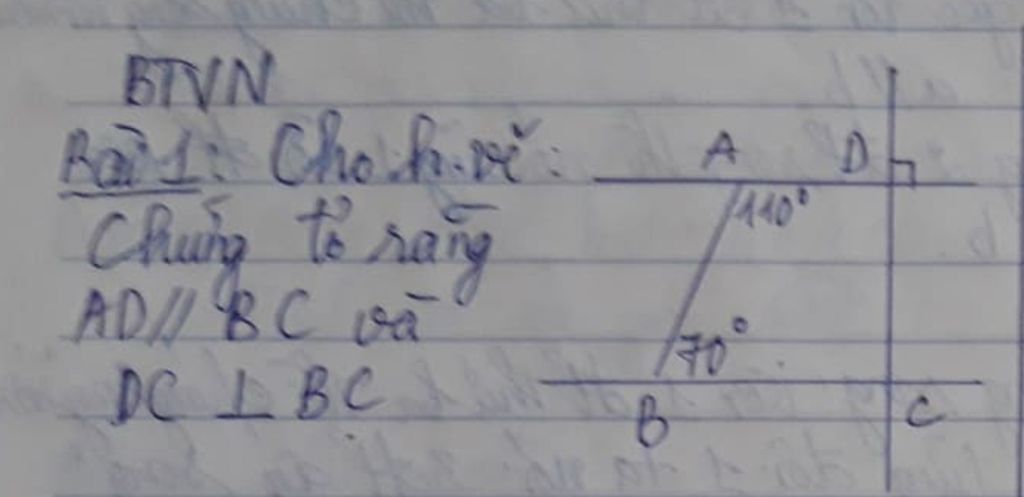 BTVN
Bài 1: Cho h.vẽ:
Chứng tỏ rằng
AD // BC và
DC ⊥ BC
A D
110°
70°
B C